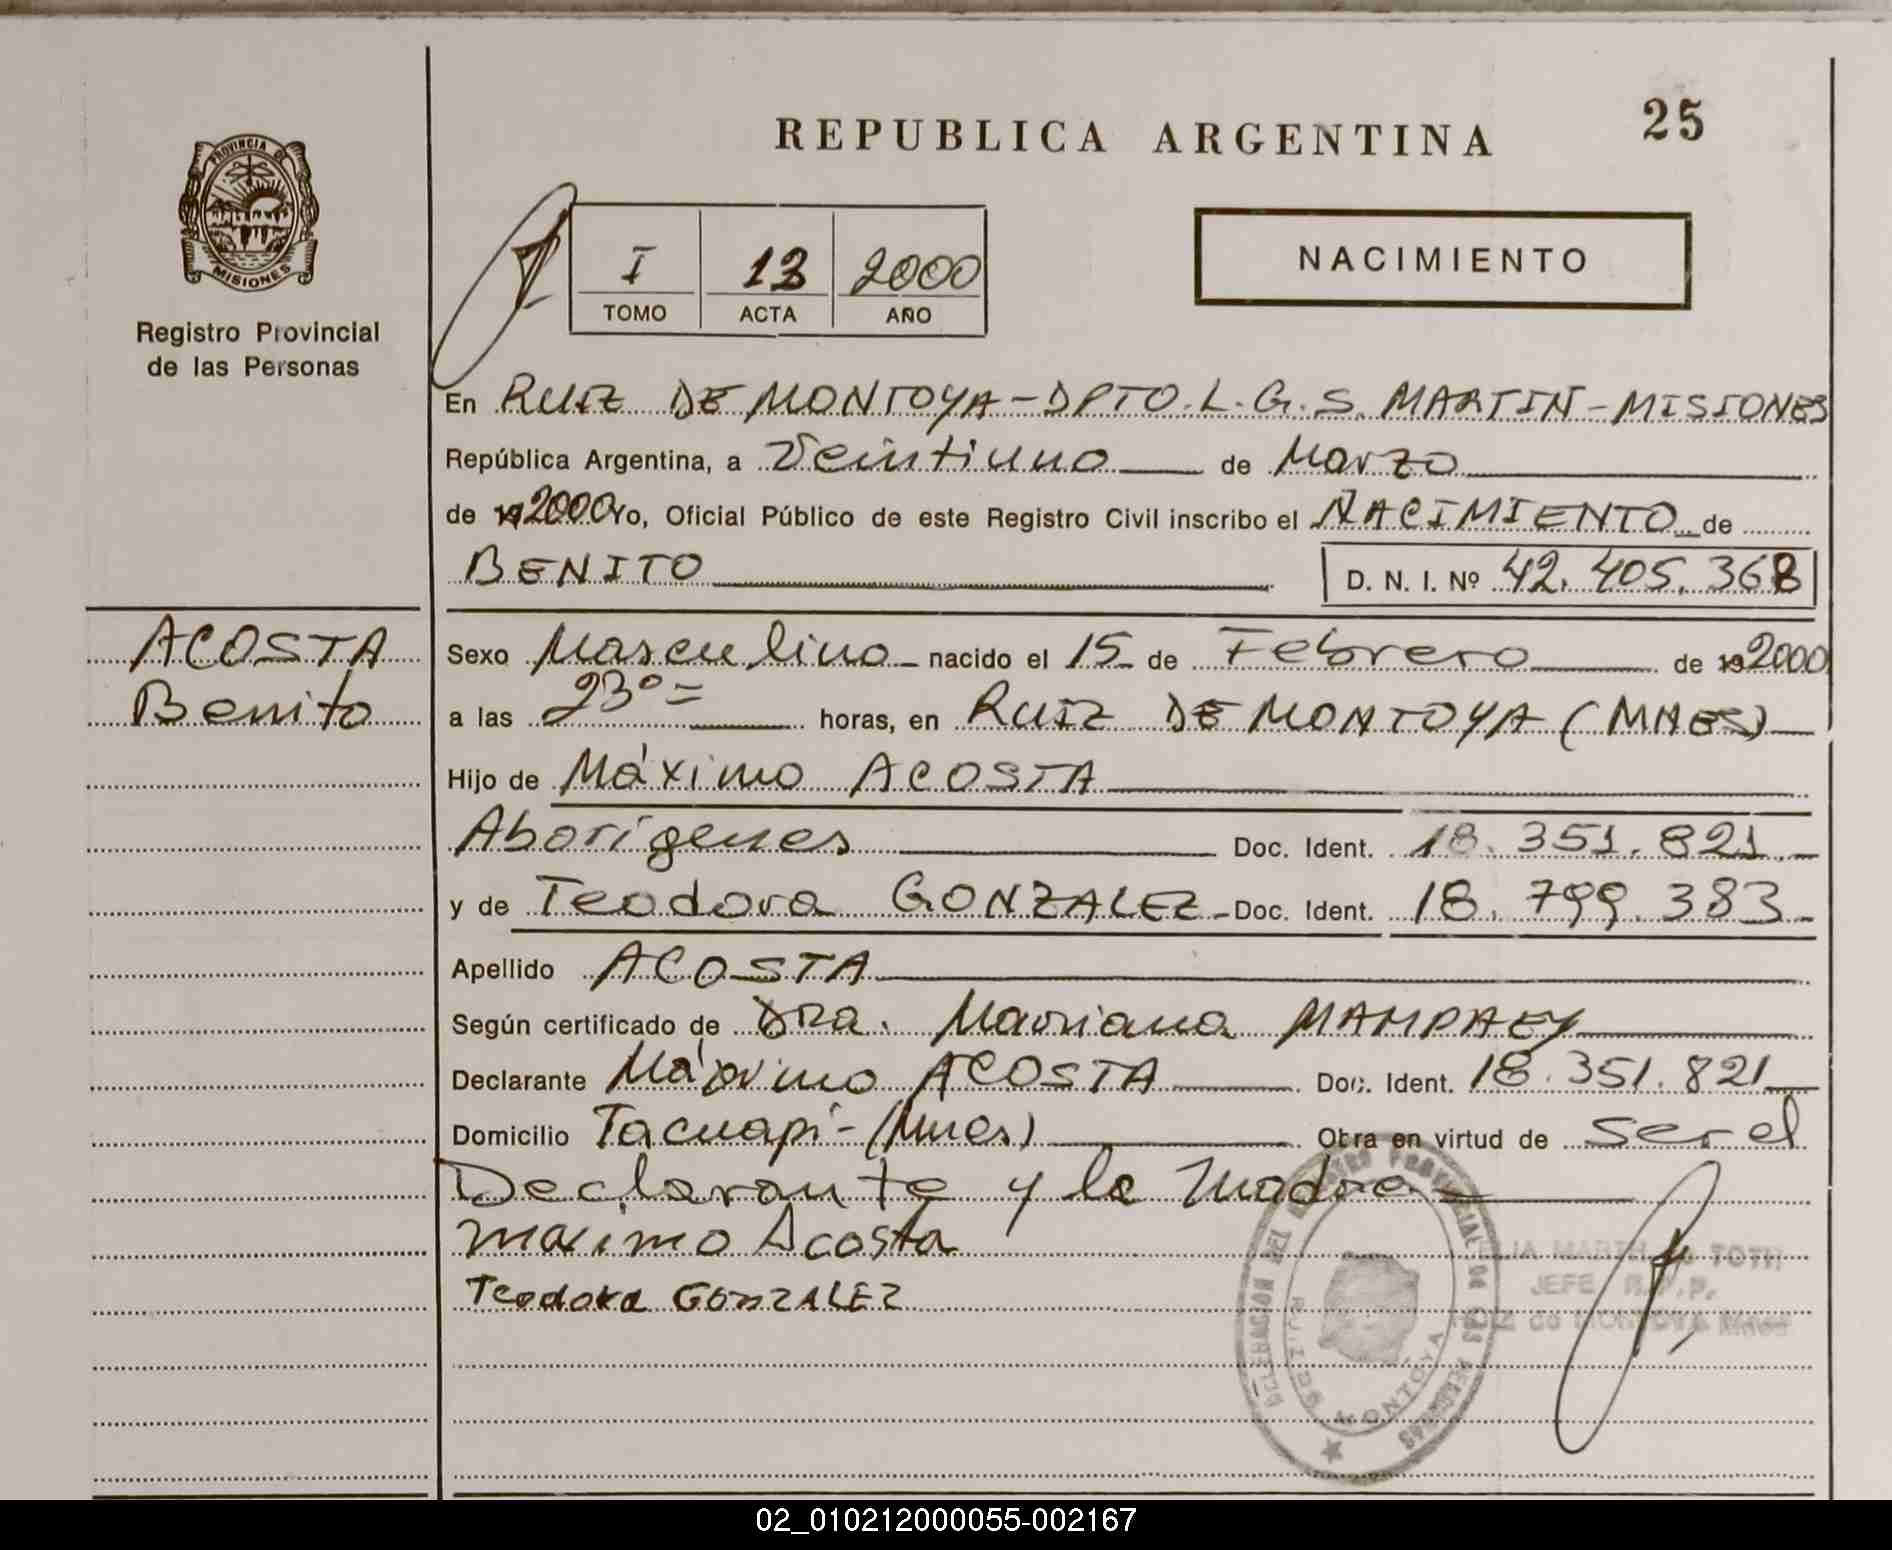 REPUBLICA ARGENTINA
25
PROVINCIA DE
MISIONES
Registro Provincial
de las Personas
I 13 2000
TOMO ACTA AÑO
NACIMIENTO
En RUIZ DE MONTOYA-DPTO.L.G.S. MARTIN-MISIONES
República Argentina, a Veintiuno de Marzo
de 19 2000 Yo, Oficial Público de este Registro Civil inscribo el NACIMIENTO de
BENITO D. N. I. Nº 42.405.368
ACOSTA
Benito
Sexo Masculino nacido el 15 de Febrero de 19 2000
a las 23º= horas, en RUIZ DE MONTOYA (MNES)
Hijo de Máximo ACOSTA
Aborígenes Doc. Ident. 18.351.821
y de Teodora GONZALEZ Doc. Ident. 18.799.383
Apellido ACOSTA
Según certificado de DRA. Mariana MAMPAEY
Declarante Máximo ACOSTA Doc. Ident. 18.351.821
Domicilio Tacuapí-(Mnes) Obra en virtud de ser el
Declarante y la madre
maximo Acosta
Teodora GONZALEZ
DELEGACION DEL REGISTRO PROVINCIAL DE LAS PERSONAS
RUIZ DE MONTOYA
TOTH
JEFE R.P.P.
de MONTOYA Mnes
02_010212000055-002167